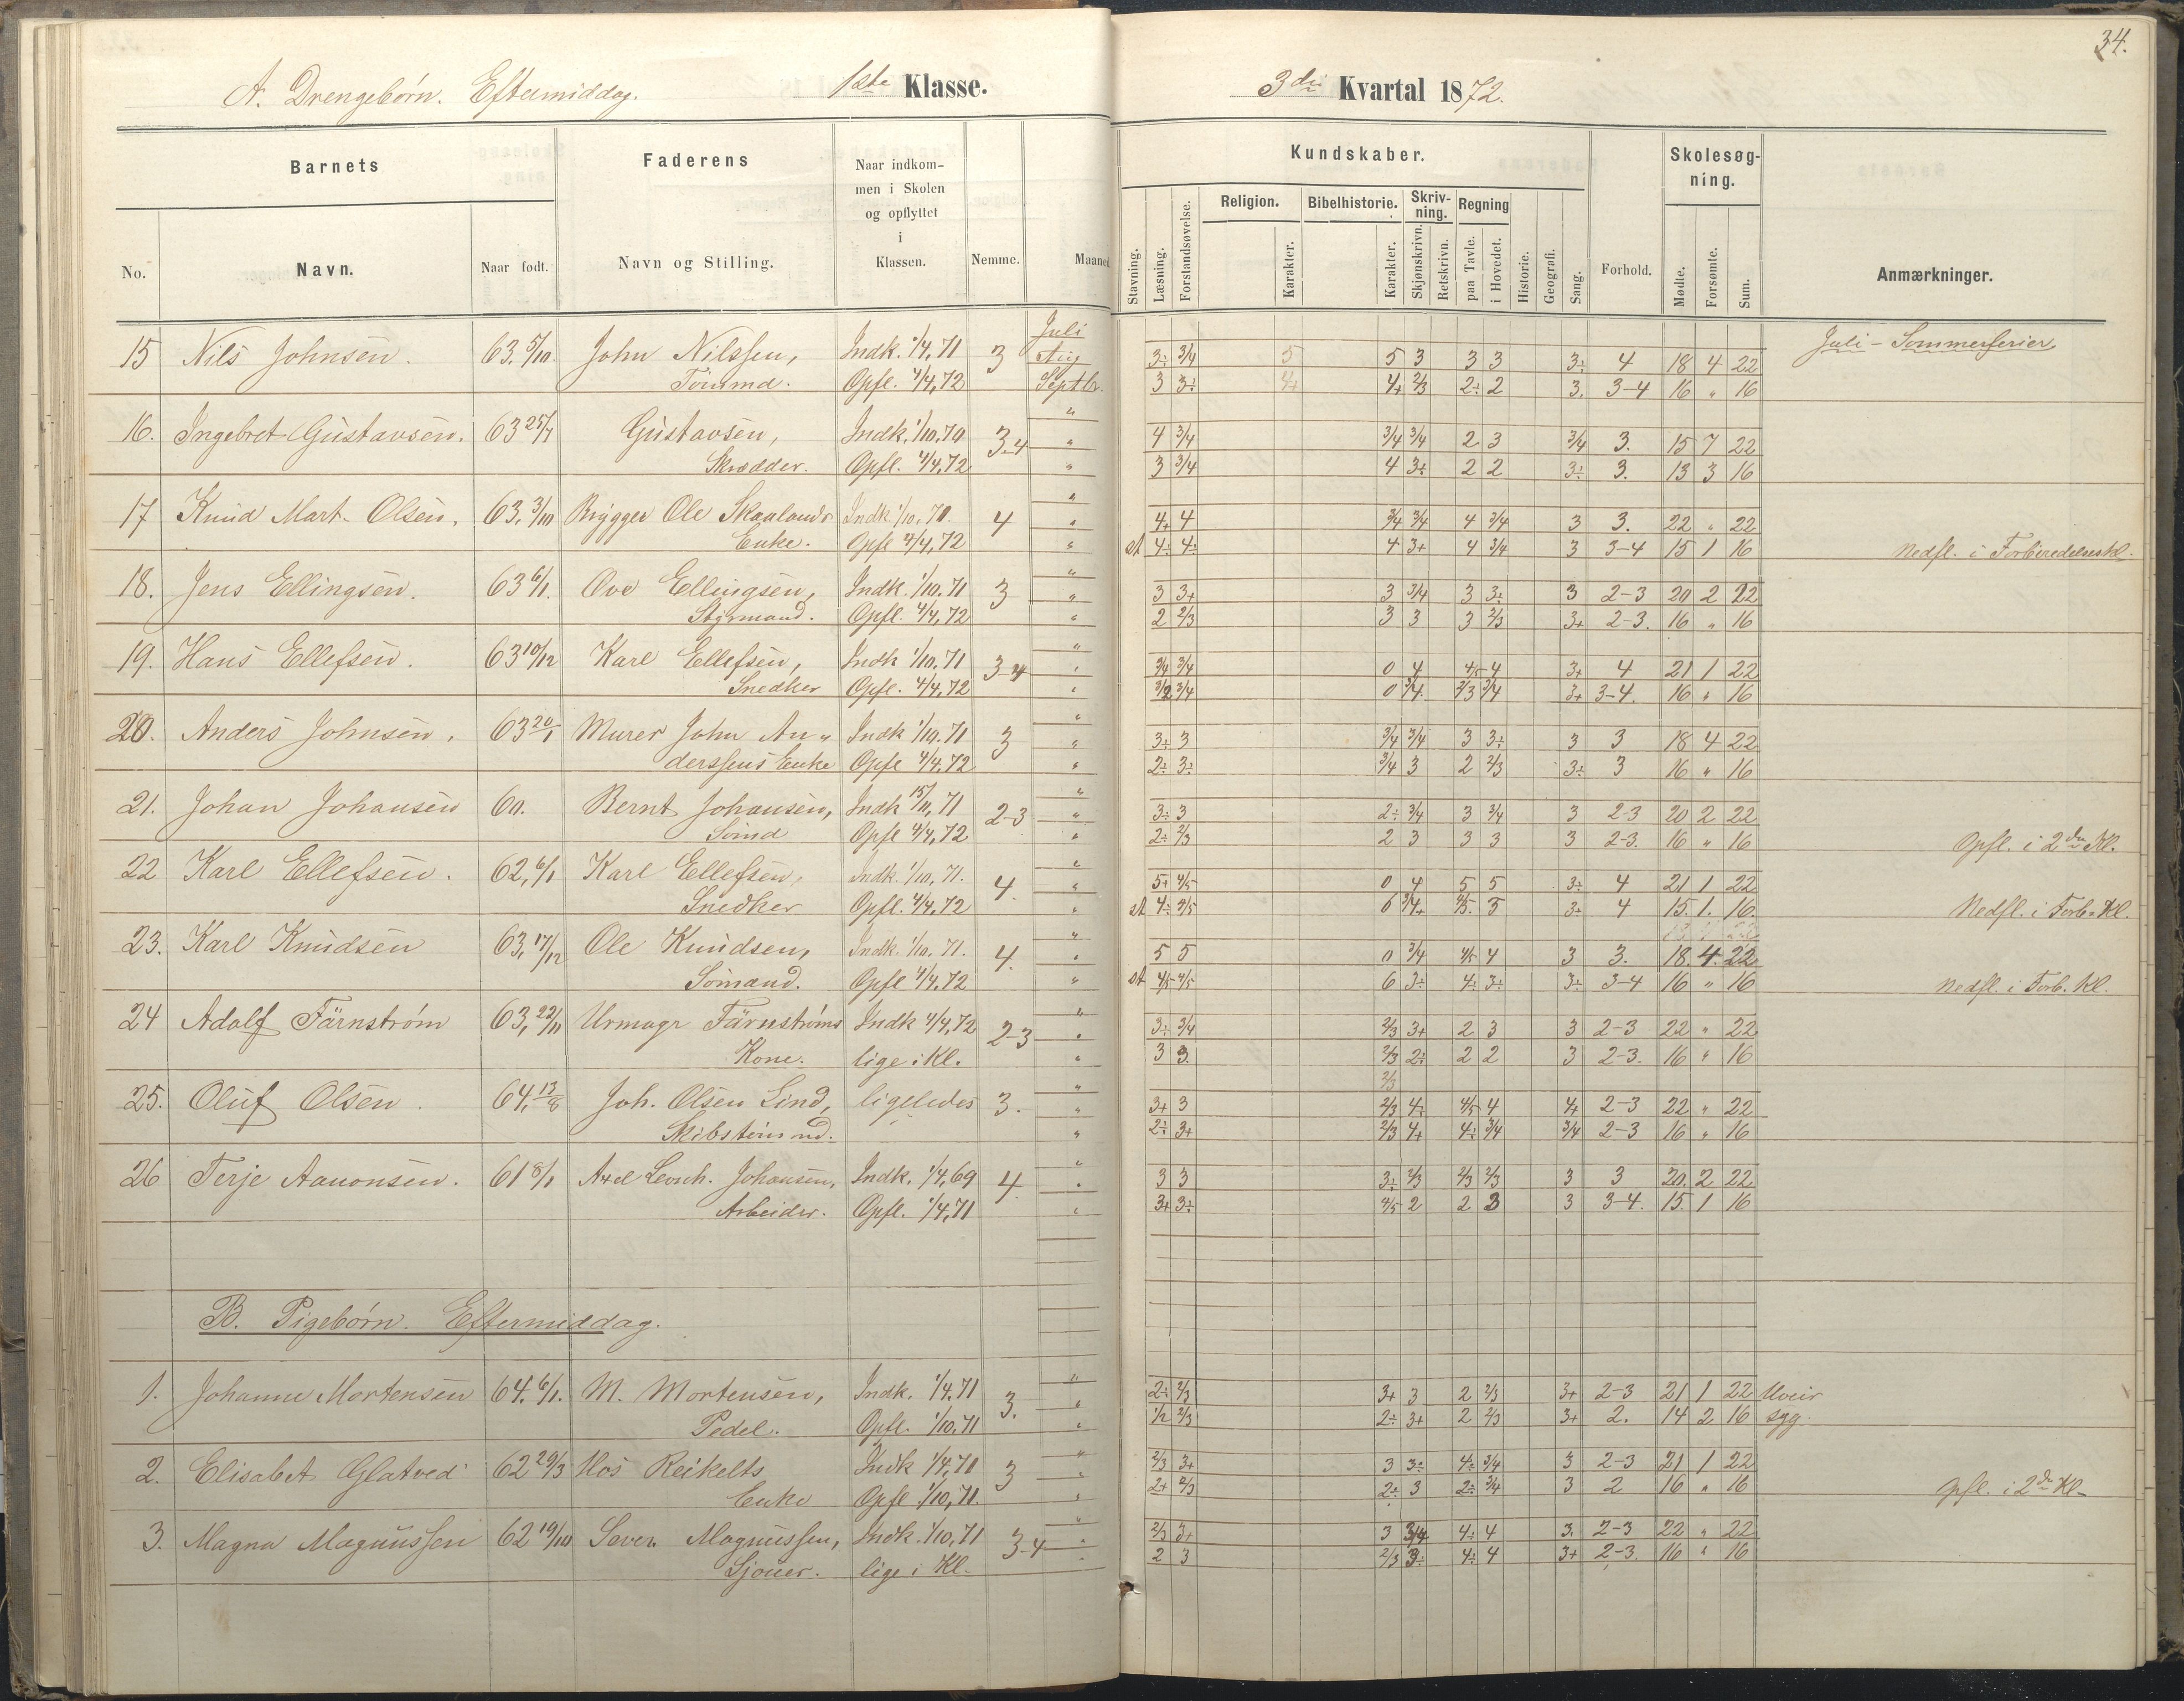 34.
A. Drengebørn. Eftermiddag. 1ste Klasse. 3die Kvartal 1872.
Barnets Faderens Naar indkommen i Skolen og opflyttet i Klassen. Nemme. Maaned Kundskaber. Skolesøgning.
No. Navn. Naar født. Navn og Stilling. Stavning. Læsning. Forstandsøvelse. Religion. Karakter. Bibelhistorie. Karakter. Skrivning. Skjønskrivn. Retskrivn. Regning paa Tavle. i Hovedet. Historie. Geografi. Sang. Forhold. Mødte. Forsømte. Sum. Anmærkninger.
Juli Juli - Sommerferier
15 Nils Johnsen. 63. 5/10. John Nilssen, Indk. 1/4, 71 3 Aug 3÷ 3/4 5 5 3 3 3 3÷ 4 18 4 22
Tømmd. Opfl. 4/4, 72 Septbr. 3 3÷ 4+ 4+ 2/3 2÷ 2 3. 3-4 16 " 16
16. Ingebret Gustavsen. 63 25/7 Gustavsen, Indk. 1/10. 70 3-4 " 4 3/4 3/4 3/4 2 3 3/4 3. 15 7 22
Skrædder. Opfl. 4/4, 72 " 3 3/4 4 3÷ 2 2 3÷ 3. 13 3 16
17 Knud Mart. Olsen. 63, 3/10 Brygger Ole Skaalands Indk 1/10, 70. 4 " 4+ 4 3/4 3/4 4 3/4 3 3. 22 " 22
Enke. Opfl 4/4, 72 " 4÷ 4÷ 4 3+ 4 3/4 3 3-4 15 1 16 Nedfl. i Forberedelseskl.
18. Jens Ellingsen. 63 6/1. Ove Ellingsen, Indk. 1/10. 71 3 " 3 3+ 3 3/4 3 3÷ 3 2-3 20 2 22
Styrmand. Opfl. 4/4, 72 " 2 2/3 3 3 3 2/3 3+ 2-3. 16 " 16
19. Hans Ellefsen. 63 10/12 Karl Ellefsen, Indk 1/10, 71 3-4 " 3/4 3/4 0 4 4/5 4 3+ 4 21 1 22
Snedker Opfl. 4/4, 72 " 3/4 0 3/4. 2/3 3/4 3+ 3-4. 16 " 16
20. Anders Johnsen. 63 20/1 Murer John An- Indk 1/10. 71 3 " 3÷ 3 3/4 3/4 3 3÷ 3 3 18 4 22
derssens Enke Opfl 4/4, 72 " 2÷ 3÷ 3/4 3 2 2/3 3÷ 3 16 " 16
21. Johan Johansen 60. Bernt Johansen, Indk 15/11, 71 2-3 " 3÷ 3 2÷ 3/4 3 3/4 3 2-3 20 2 22
Sømd Opfl 4/4, 72 " 2÷ 2/3 2 3 3 3 3 2-3. 16 " 16 Opfl. i 2den Kl.
22 Karl Ellefsen. 62, 6/1 Karl Ellefsen, Indk. 1/10, 71. 4. " 5+ 4/5 0 4 5 5 3÷ 4 21 1 22
Snedker Opfl. 4/4, 72 " 4÷ 4/5 6 3/4+ 4/5. 5 3÷ 4 15. 1. 16. Nedfl. i Forb. Kl.
23. Karl Knudsen 63, 17/12 Ole Knudsen, Indk. 1/10. 71. 4. " 5 5 0 3/4 4/5 4 3 3. 18. 4. 22
Sømand. Opfl 4/4, 72 " 4/5 4/5 6 3÷ 4÷ 3÷ 3÷ 3-4 16 " 16 Nedfl. i Forb. Kl.
24 Adolf Färnstrøm 63, 22/11 Urmagr Färnstrøms Indk 4/4, 72 2-3 " 3÷ 3/4 2/3 3+ 2 3 3 2-3 22 " 22
Kone. lige i Kl. " 3 3. 2/3 2÷ 2 2 3 2-3. 16 " 16
2/3
25. Oluf Olsen. 64, 13/8 Joh. Olsen Lind, ligeledes 3. " 3+ 3 2/3 4÷ 4/5 4 4+ 2-3 22 " 22
Skibstømmd. " 2÷ 3+ 2/3 4+ 4÷ 3/4 3/4 2-3 16 " 16
26 Terje Aanonsen. 61 8/1 Axel Leonh. Johansen, Indk. 1/4, 69 4. " 3 3 3÷ 2/3 2/3 2/3 3 3 20. 2 22
Arbeider. Opfl. 1/4, 71 " 3+ 3÷ 4/5 2 2 3 3 3-4. 15. 1 16
B. Pigebørn. Eftermiddag.
1. Johanne Mortensen 64. 6/1. M. Mortensen, Indk. 1/4. 71 3. " 2÷ 2/3 3+ 3 2 2/3 3+ 2-3 21 1 22 Uveir
Pedel. Opfl. 1/10. 71 " 1/2 2/3 2÷ 3+ 2 2/3 3+ 2. 14 2 16 syg.
2. Elisabet Glatved 62 29/3 Hos Reikelts Indk 1/4, 70 3 " 2/3 3+ 3 3÷ 4÷ 3/4 3 2-3 21 1 22
Enke Opfl 1/10, 71. " 2+ 2/3 2÷ 3 2÷ 3/4 3 2 16 " 16 Opfl. i 2den Kl.
3. Magna Magnussen 62 19/10 Søren Magnussen, Indk. 1/10, 71 3-4 " 2/3 3+ 3 3/4 4÷ 4 3. 2-3 22 " 22
Sjouer. lige i Kl. " 2 3 2/3 3÷ 4÷ 4 3+ 2-3. 16 " 16